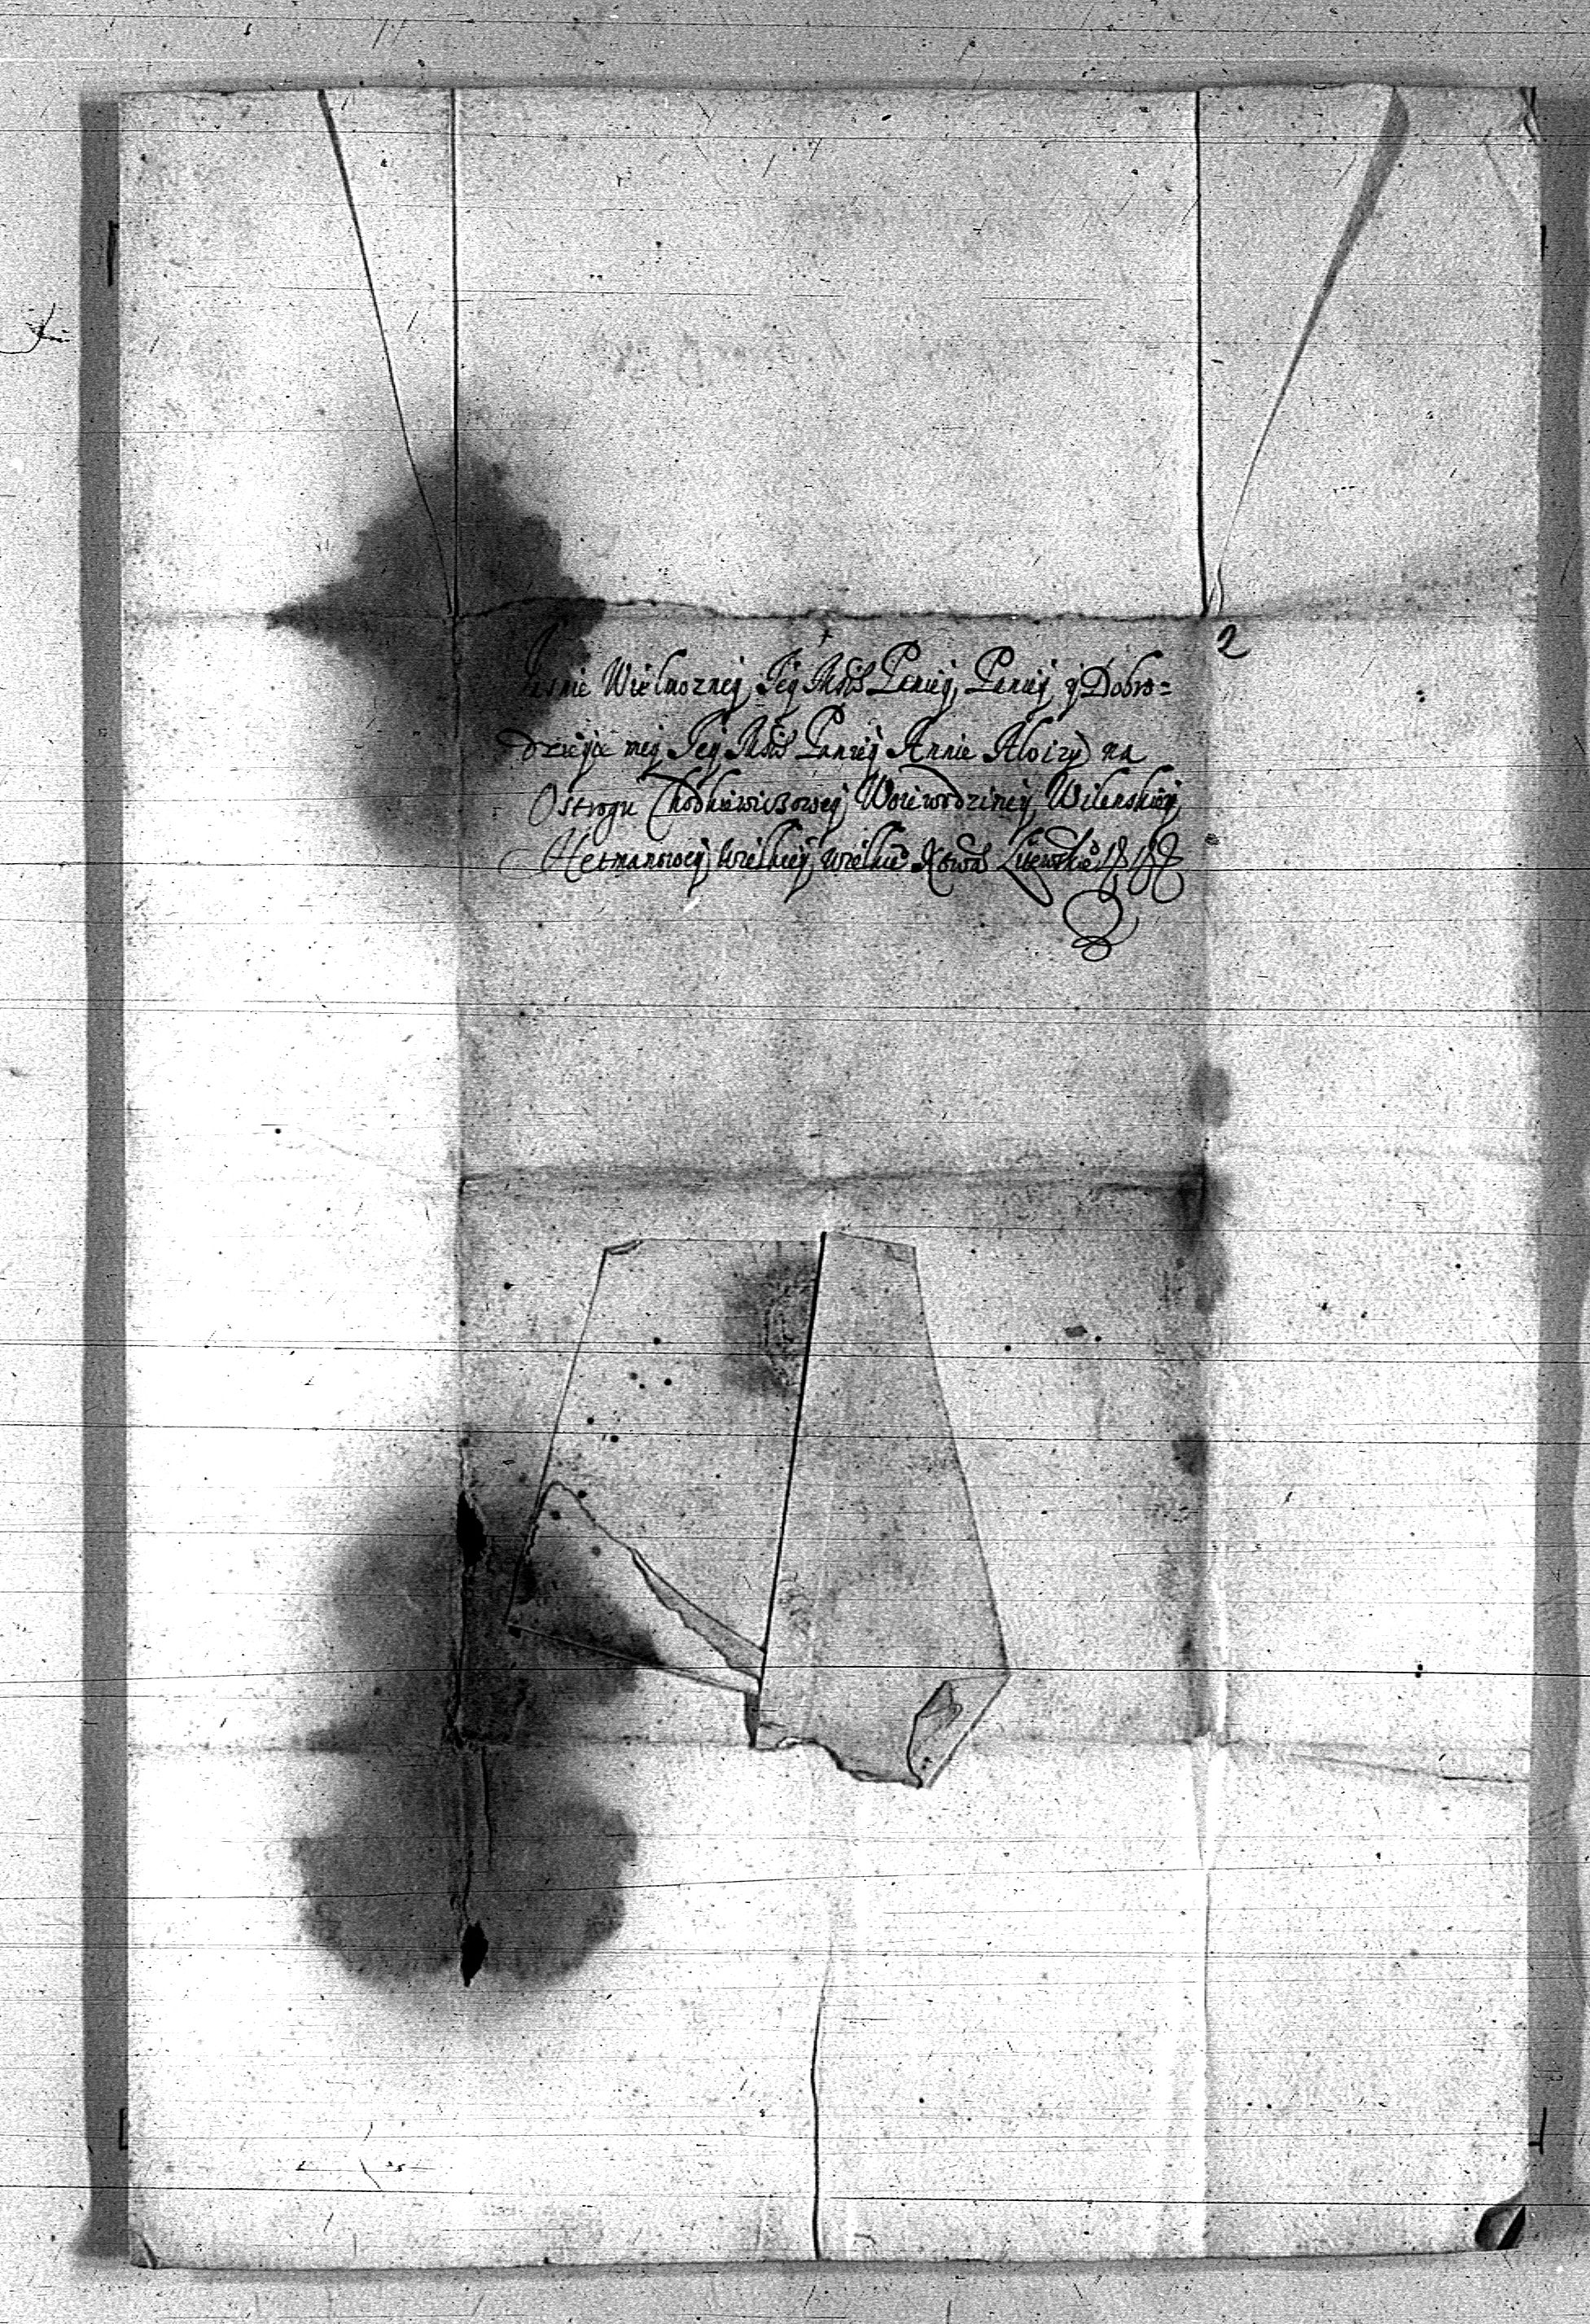 2
Jasnie Wielmozney Jey Msćł Paniey, Paniey y Dobro=
dzieyce mey Jey Msćł Paniey Annie Aloizy na
Ostrogu Chodkiewiczowey Woiewodziney Wilenskiey
Hetmanowey Wielkiey Wielkie° Xtwa Litewskie°